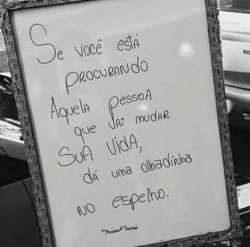 Se você está
procurando
Aquela pessoa
que vai mudar
SUA VIDA,
dá uma olhadinha
no espelho.